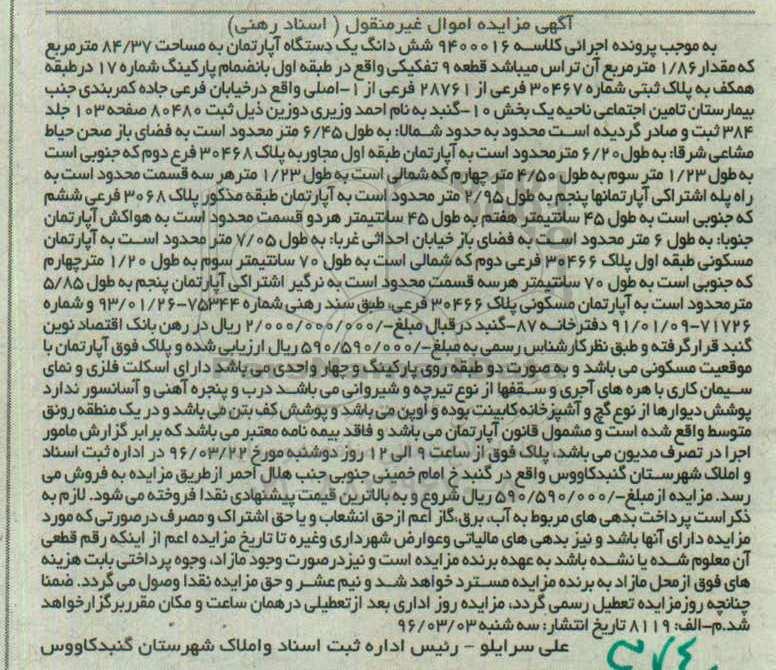 آگهی مزایده اموال غیرمنقول ( اسناد رهنی)
به موجب پرونده اجرائی کلاسه ۹۴۰۰۰۱۶ شش دانگ یک دستگاه آپارتمان به مساحت ۸۴/۳۷ مترمربع
که مقدار ۱/۸۶ مترمربع آن تراس میباشد قطعه ۹ تفکیکی واقع در طبقه اول بانضمام پارکینگ شماره ۱۷ درطبقه
همکف به پلاک ثبتی شماره ۳۰۴۶۷ فرعی از ۲۸۷۶۱ فرعی از ۱-اصلی واقع درخیابان فرعی جاده کمربندی جنب
بیمارستان تامین اجتماعی ناحیه یک بخش ۱۰-گنبد به نام احمد وزیری دوزین ذیل ثبت ۸۰۴۸۰ صفحه ۱۰۳ جلد
۳۸۴ ثبت و صادر گردیده است محدود به حدود شمالا: به طول ۶/۴۵ متر محدود است به فضای باز صحن حیاط
مشاعی شرقا: به طول ۶/۲۰ مترمحدود است به آپارتمان طبقه اول مجاوربه پلاک ۳۰۴۶۸ فرع دوم که جنوبی است
به طول ۱/۲۳ متر سوم به طول ۴/۵۰ متر چهارم که شمالی است به طول ۱/۲۳ مترهر سه قسمت محدود است به
راه پله اشتراکی آپارتمانها پنجم به طول ۲/۹۵ متر محدود است به آپارتمان طبقه مذکور پلاک ۳۰۶۸ فرعی ششم
که جنوبی است به طول ۴۵ سانتیمتر هفتم به طول ۴۵ سانتیمتر هردو قسمت محدود است به هواکش آپارتمان
جنوبا: به طول ۶ متر محدود است به فضای باز خیابان احداثی غربا: به طول ۷/۰۵ متر محدود است به آپارتمان
مسکونی طبقه اول پلاک ۳۰۴۶۶ فرعی دوم که شمالی است به طول ۷۰ سانتیمتر سوم به طول ۱/۲۰ مترچهارم
که جنوبی است به طول ۷۰ سانتیمتر هرسه قسمت محدود است به نرگیر اشتراکی آپارتمان پنجم به طول ۵/۸۵
مترمحدود است به آپارتمان مسکونی پلاک ۳۰۴۶۶ فرعی، طبق سند رهنی شماره ۷۵۳۴۴-۹۳/۰۱/۲۶ و شماره
۷۱۷۲۶-۹۱/۰۱/۰۹ دفترخانه ۸۷-گنبد درقبال مبلغ-/۲/۰۰۰/۰۰۰/۰۰۰ ریال در رهن بانک اقتصاد نوین
گنبد قرارگرفته و طبق نظرکارشناس رسمی به مبلغ-/۵۹۰/۵۹۰/۰۰۰ ریال ارزیابی شده و پلاک فوق آپارتمان با
موقعیت مسکونی می باشد و به صورت دو طبقه روی پارکینگ و چهار واحدی می باشد دارای اسکلت فلزی و نمای
سیمان کاری با هره های آجری و سقفها از نوع تیرچه و شیروانی می باشد درب و پنجره آهنی و آسانسور ندارد
پوشش دیوارها از نوع گچ و آشپزخانه کابینت بوده و اوپن می باشد و پوشش کف بتن می باشد و در یک منطقه رونق
متوسط واقع شده است و مشمول قانون آپارتمان می باشد و فاقد بیمه نامه معتبر می باشد که برابر گزارش مامور
اجرا در تصرف مدیون می باشد، پلاک فوق از ساعت ۹ الی ۱۲ روز دوشنبه مورخ ۹۶/۰۳/۲۲ در اداره ثبت اسناد
و املاک شهرستان گنبدکاووس واقع در گنبد خ امام خمینی جنوبی جنب هلال احمر ازطریق مزایده به فروش می
رسد. مزایده ازمبلغ-/۵۹۰/۵۹۰/۰۰۰ ریال شروع و به بالاترین قیمت پیشنهادی نقدا فروخته می شود. لازم به
ذکر است پرداخت بدهی های مربوط به آب، برق،گاز اعم ازحق انشعاب و یا حق اشتراک و مصرف درصورتی که مورد
مزایده دارای آنها باشد و نیز بدهی های مالیاتی وعوارض شهرداری وغیره تا تاریخ مزایده اعم از اینکه رقم قطعی
آن معلوم شده یا نشده باشد به عهده برنده مزایده است و نیزدرصورت وجود مازاد، وجوه پرداختی بابت هزینه
های فوق ازمحل مازاد به برنده مزایده مسترد خواهد شد و نیم عشر و حق مزایده نقدا وصول می گردد. ضمنا
چنانچه روزمزایده تعطیل رسمی گردد، مزایده روز اداری بعد ازتعطیلی درهمان ساعت و مکان مقرربرگزارخواهد
شد.م-الف: ۸۱۱۹ تاریخ انتشار: سه شنبه ۹۶/۰۳/۰۳
علی سرایلو - رئیس اداره ثبت اسناد واملاک شهرستان گنبدکاووس